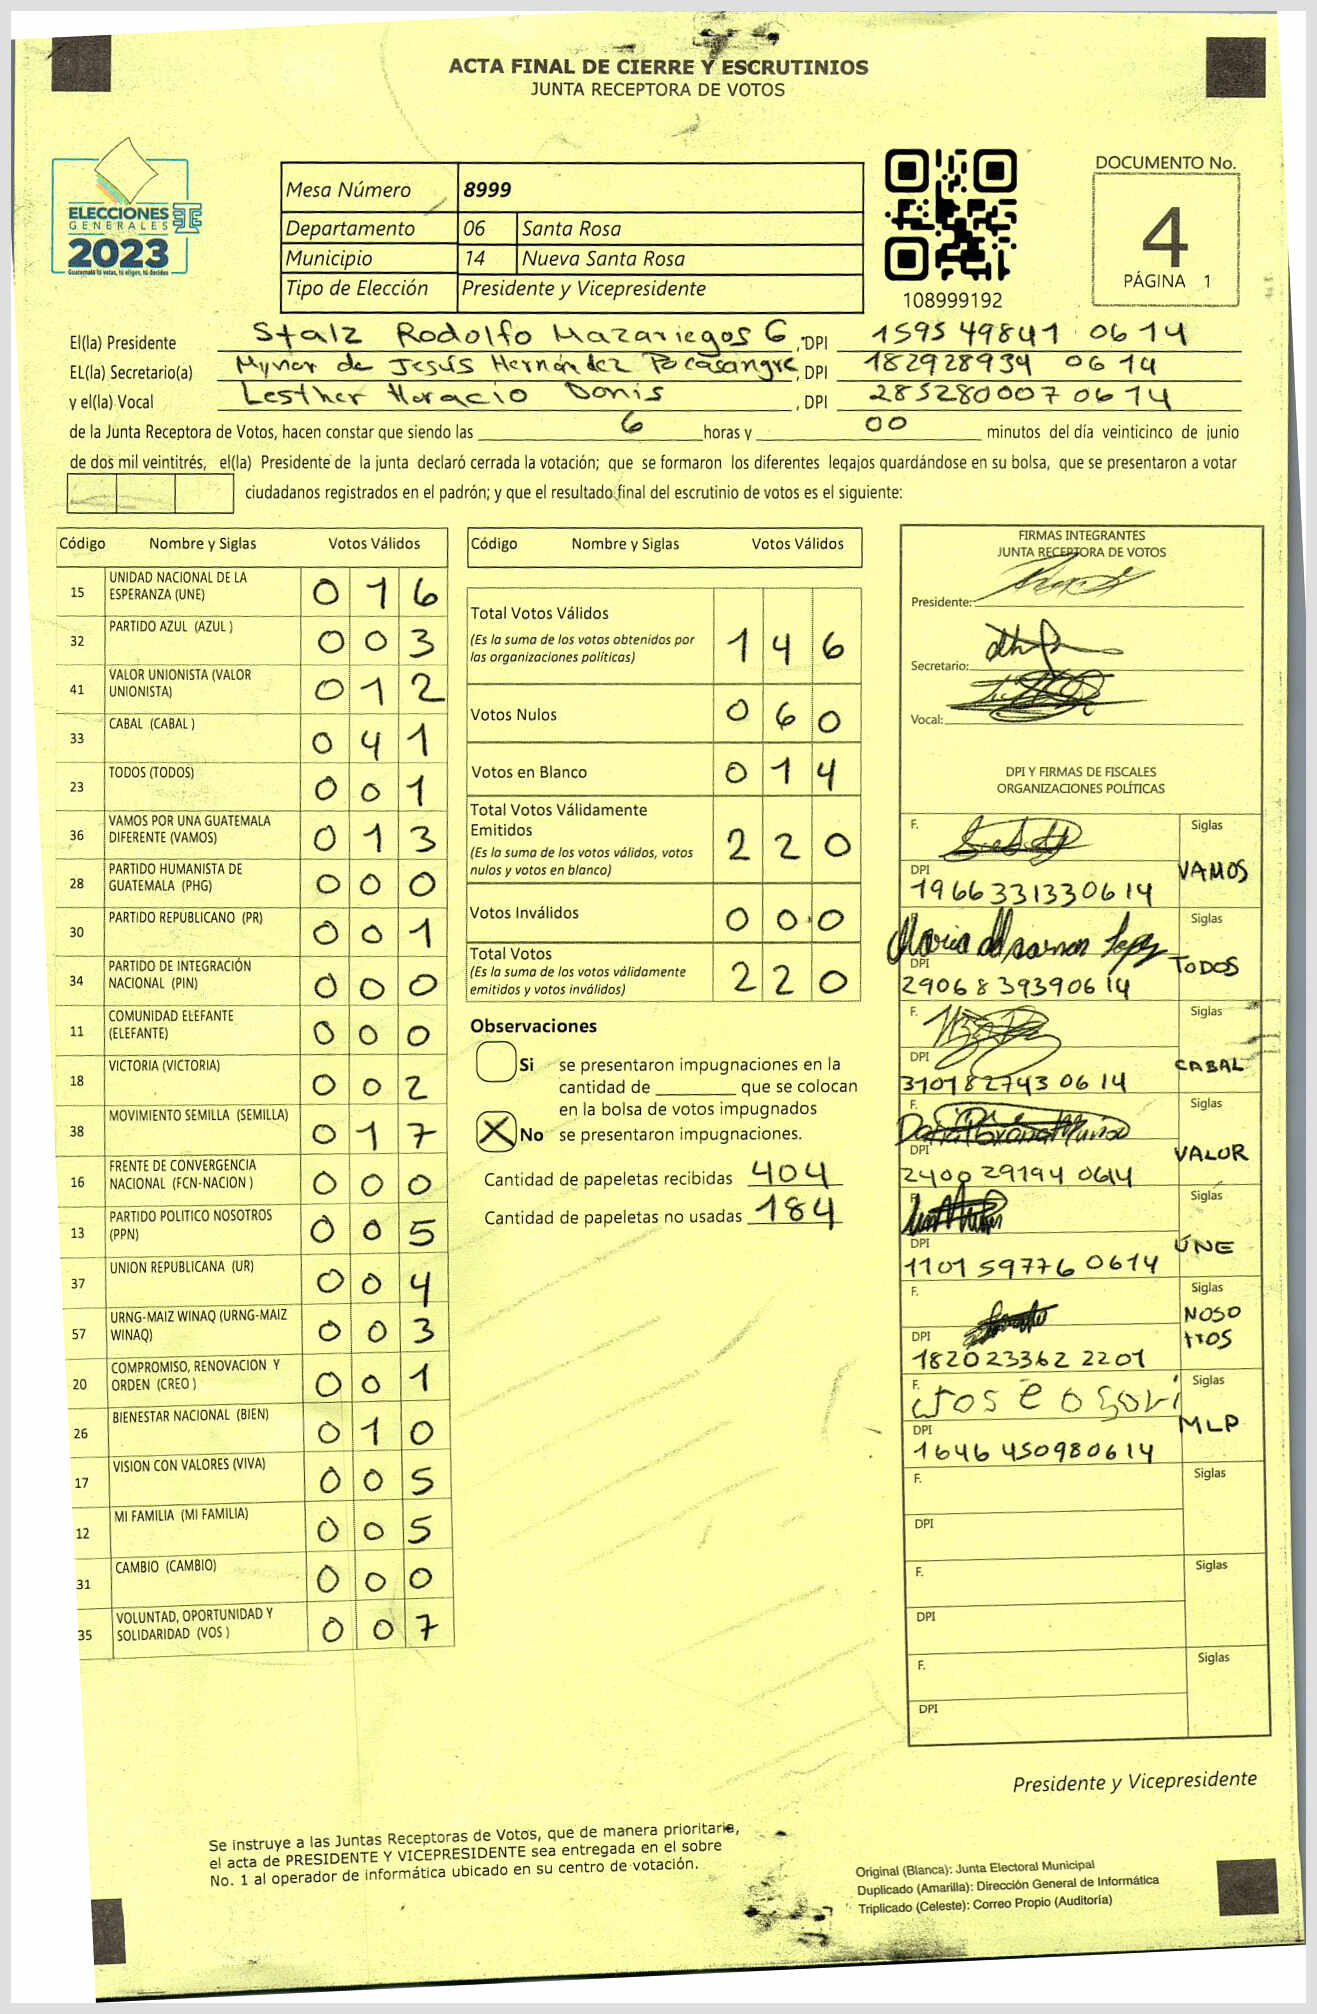 ACTA FINAL DE CIERRE Y ESCRUTINIOS
JUNTA RECEPTORA DE VOTOS
ELECCIONES
GENERALES
2023
Guatemala tú votas, tú eliges, tú decides
Mesa Número 8999
Departamento 06 Santa Rosa
Municipio 14 Nueva Santa Rosa
Tipo de Elección Presidente y Vicepresidente
108999192
DOCUMENTO No.
4
PÁGINA 1
El(la) Presidente Stalz Rodolfo Mazariegos G, DPI 1595 49841 0614
EL(la) Secretario(a) Mynor de Jesús Hernández Pocasangre, DPI 182928934 0614
y el(la) Vocal Lesther Horacio Donis, DPI 285280007 0614
de la Junta Receptora de Votos, hacen constar que siendo las 6 horas y 00 minutos del día veinticinco de junio
de dos mil veintitrés, el(la) Presidente de la junta declaró cerrada la votación; que se formaron los diferentes legajos guardándose en su bolsa, que se presentaron a votar
ciudadanos registrados en el padrón; y que el resultado final del escrutinio de votos es el siguiente:
Código Nombre y Siglas Votos Válidos
15 UNIDAD NACIONAL DE LA ESPERANZA (UNE) 0 1 6
32 PARTIDO AZUL (AZUL ) 0 0 3
41 VALOR UNIONISTA (VALOR UNIONISTA) 0 1 2
33 CABAL (CABAL ) 0 4 1
23 TODOS (TODOS) 0 0 1
36 VAMOS POR UNA GUATEMALA DIFERENTE (VAMOS) 0 1 3
28 PARTIDO HUMANISTA DE GUATEMALA (PHG) 0 0 0
30 PARTIDO REPUBLICANO (PR) 0 0 1
34 PARTIDO DE INTEGRACIÓN NACIONAL (PIN) 0 0 0
11 COMUNIDAD ELEFANTE (ELEFANTE) 0 0 0
18 VICTORIA (VICTORIA) 0 0 2
38 MOVIMIENTO SEMILLA (SEMILLA) 0 1 7
16 FRENTE DE CONVERGENCIA NACIONAL (FCN-NACION ) 0 0 0
13 PARTIDO POLITICO NOSOTROS (PPN) 0 0 5
37 UNION REPUBLICANA (UR) 0 0 4
57 URNG-MAIZ WINAQ (URNG-MAIZ WINAQ) 0 0 3
20 COMPROMISO, RENOVACION Y ORDEN (CREO ) 0 0 1
26 BIENESTAR NACIONAL (BIEN) 0 1 0
17 VISION CON VALORES (VIVA) 0 0 5
12 MI FAMILIA (MI FAMILIA) 0 0 5
31 CAMBIO (CAMBIO) 0 0 0
35 VOLUNTAD, OPORTUNIDAD Y SOLIDARIDAD (VOS ) 0 0 7
Código Nombre y Siglas Votos Válidos
Total Votos Válidos 1 4 6
(Es la suma de los votos obtenidos por
las organizaciones políticas)
Votos Nulos 0 6 0
Votos en Blanco 0 1 4
Total Votos Válidamente
Emitidos 2 2 0
(Es la suma de los votos válidos, votos
nulos y votos en blanco)
Votos Inválidos 0 0 0
Total Votos 2 2 0
(Es la suma de los votos válidamente
emitidos y votos inválidos)
Observaciones
Si se presentaron impugnaciones en la
cantidad de ________ que se colocan
en la bolsa de votos impugnados
X No se presentaron impugnaciones.
Cantidad de papeletas recibidas 404
Cantidad de papeletas no usadas 184
FIRMAS INTEGRANTES
JUNTA RECEPTORA DE VOTOS
Presidente:
Secretario:
Vocal:
DPI Y FIRMAS DE FISCALES
ORGANIZACIONES POLÍTICAS
F. Siglas
DPI VAMOS
1966331330614
Siglas
DPI TODOS
2906839390614
F. Siglas
DPI CABAL
3101827430614
F. Siglas
DPI VALOR
2400 29194 0614
Siglas
DPI UNE
1101 59776 0614
F. Siglas
DPI NOSO
TROS
182023362 2201
F. Siglas
DPI MLP
1646 450980614
F. Siglas
DPI
F. Siglas
DPI
F. Siglas
DPI
Presidente y Vicepresidente
Se instruye a las Juntas Receptoras de Votos, que de manera prioritaria,
el acta de PRESIDENTE Y VICEPRESIDENTE sea entregada en el sobre
No. 1 al operador de informática ubicado en su centro de votación.
Original (Blanca): Junta Electoral Municipal
Duplicado (Amarilla): Dirección General de Informática
Triplicado (Celeste): Correo Propio (Auditoría)